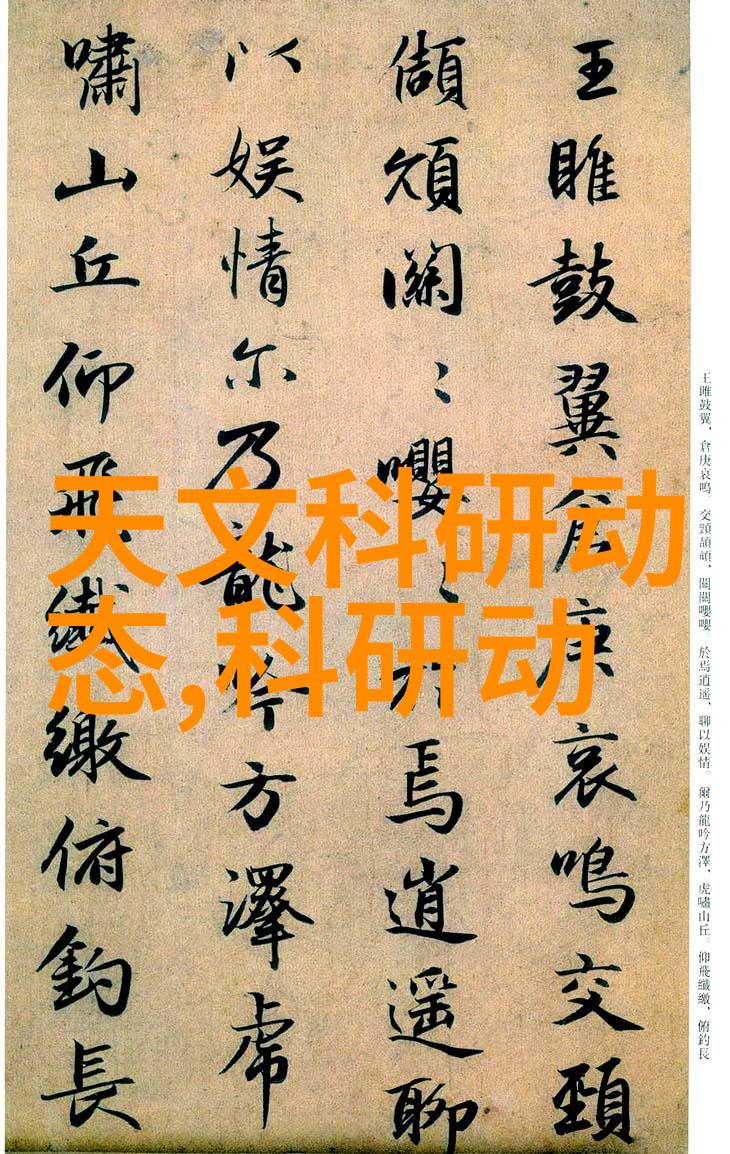 王雎鼓翼倉庚哀鳴交頸
頡頏關〻嚶〻於焉逍遥聊
以娱情尔乃龍吟方澤虎
嘯山丘仰飛纖繳俯釣長
天文科研动
态,科研动
王雎鼓翼、倉庚哀鳴。交頸頡頏、關關嚶嚶。於焉逍遥、聊以娱情。爾乃龍吟方澤、虎嘯山丘。仰飛纖繳、俯釣長